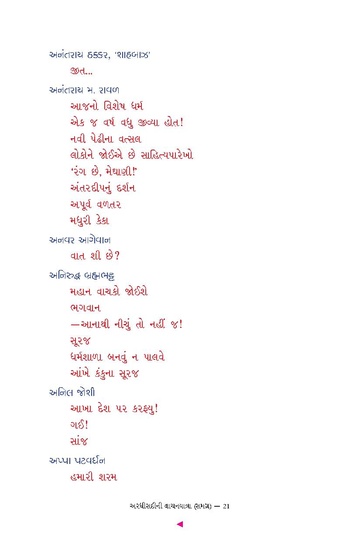 અનંતરાય ઠક્કર, ‘શાહબાઝ’
જીત...
અનંતરાય મ. રાવળ
આજનો વિશેષ ધર્મ
એક જ વર્ષ વધુ જીવ્યા હોત!
નવી પેઢીના વત્સલ
લોકોને જોઈએ છે સાહિત્યપારેખો
‘રંગ છે, મેઘાણી!’
અંતરદીપનું દર્શન
અપૂર્વ વળતર
મધુરી કેકા
અનવર આગેવાન
વાત શી છે?
અનિરુદ્ધ બ્રહ્મભટ્ટ
મહાન વાચકો જોઈશે
ભગવાન
—આનાથી નીચું તો નહીં જ!
સૂરજ
ધર્મશાળા બનવું ન પાલવે
આંખે કંકુના સૂરજ
અનિલ જોશી
આખા દેશ પર કરફ્યુ!
ગઈ!
સાંજ
અપ્પા પટવર્ધન
હમારી શરમ
અરધીસદીની વાચનયાત્રા (સમગ્ર) — 21